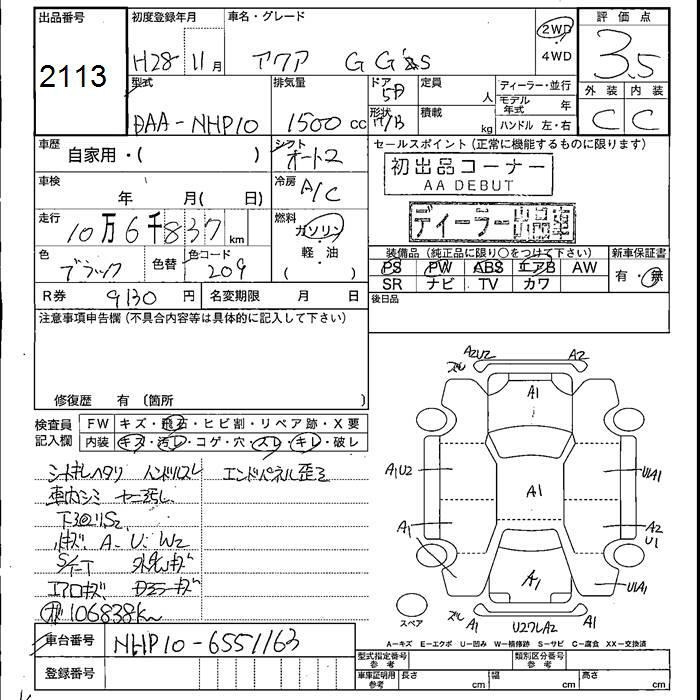 出品番号
2113
初度登録年月
H28 11月
車名・グレード
アクア G G's
2WD
4WD
評価点
3.5
外装 内装
C C
型式
DAA-NHP10
排気量
1500 cc
ドア
5D
形状
H/B
定員
人
積載
kg
ディーラー・並行
モデル年式 年
ハンドル 左・右
車歴
自家用・( )
シフト
オート
車検
年 月( 日)
冷房
A/C
走行
10万6千837 km
燃料
ガソリン
・
軽・油
色
ブラック
色替
色コード
209
R券 9130 円
名変期限 月 日
セールスポイント(正常に機能するものに限ります)
初出品コーナー
AA DEBUT
ディーラー出品車
装備品(純正品に限り○をつけて下さい)
PS PW ABS エアB AW
SR ナビ TV カワ
新車保証書
有・無
後日品
注意事項申告欄(不具合内容等は具体的に記入して下さい)
修復歴 有 (箇所 )
検査員
記入欄
FW キズ・飛石・ヒビ割・リペア跡・X要
内装 キズ・汚レ・コゲ・穴・スレ・キレ・破レ
シートキレヘタリ ハンドルスレ
エンドパネル歪ミ
車内シミ
A. U. W2
エアロキズ
106838km
車台番号 NHP10-6551163
登録番号
A2U2
A2
A1
A1U2
U1A1
A1
A1
A2
U1
A1
U1A1
スペア
A1
A1
A-キズ E-エクボ U-凹み W-補修跡 S-サビ C-腐食 XX-交換済
型式指定番号
参考
類別区分番号
参考
車庫証明用
参考
長さ cm
幅 cm
高さ cm